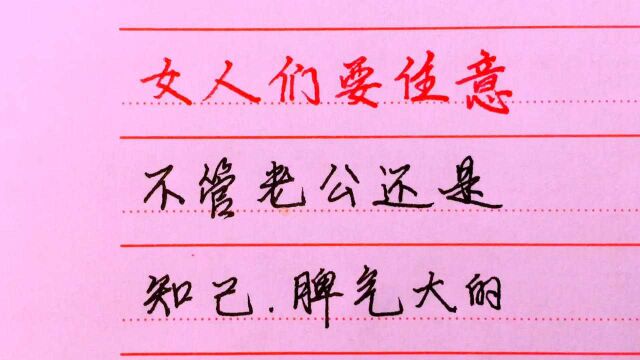 女人们要住意
不管老公还是
知己.脾气大的